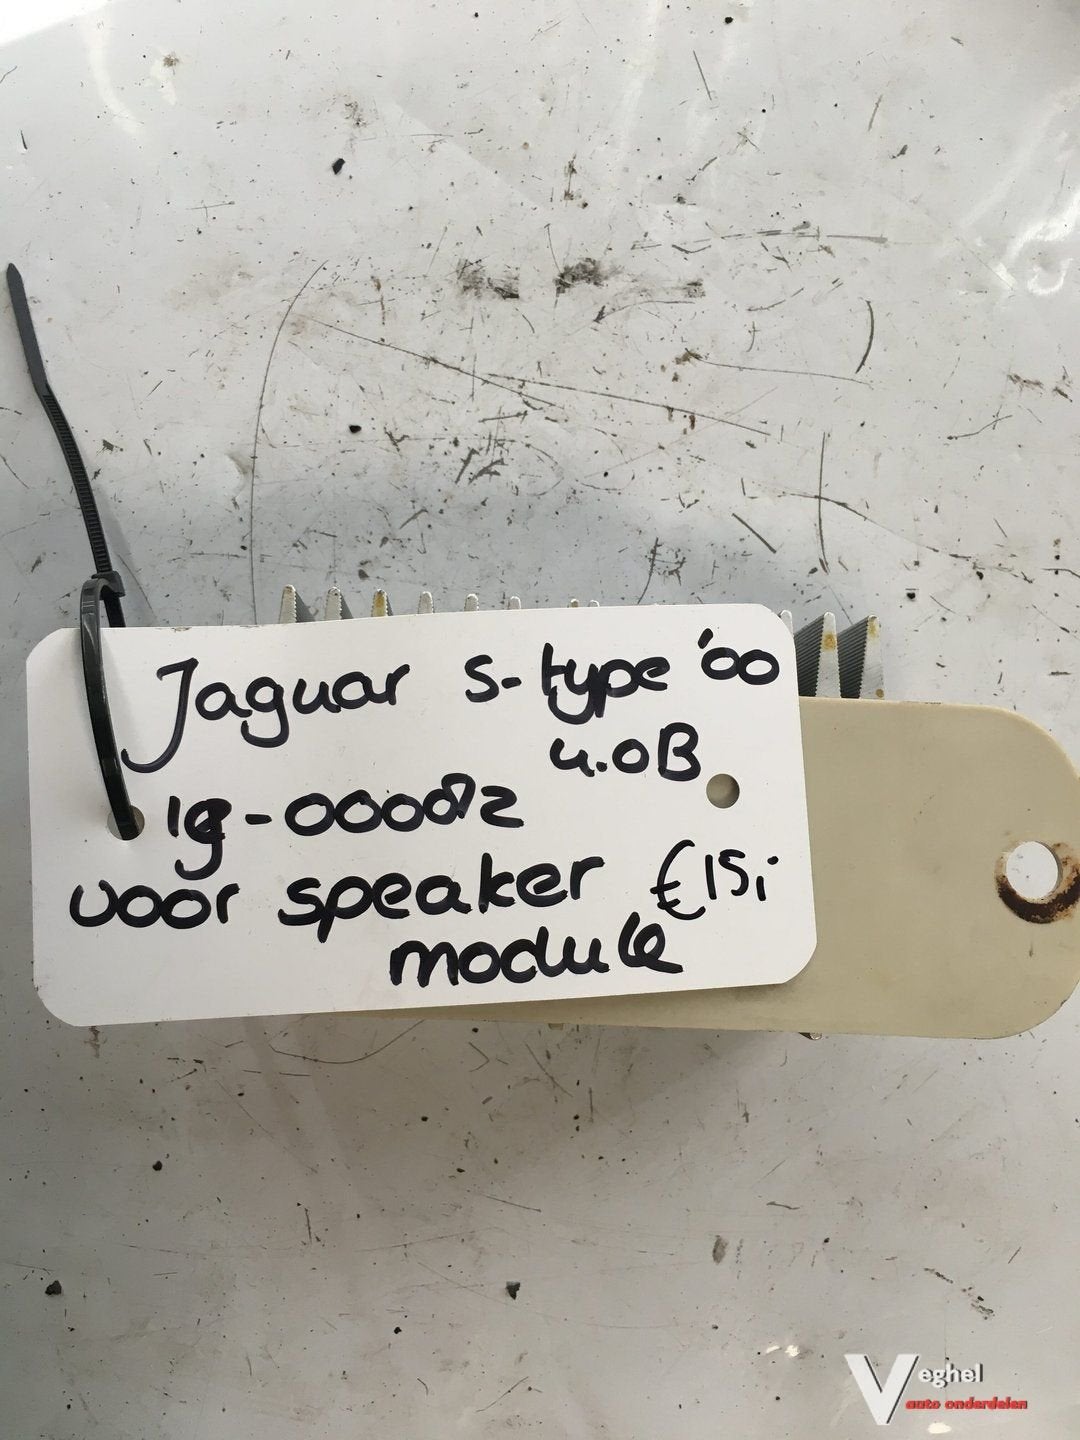 Jaguar S-type '00
4.0B
19-000082
voor speaker €15,-
module
Veghel
auto onderdelen